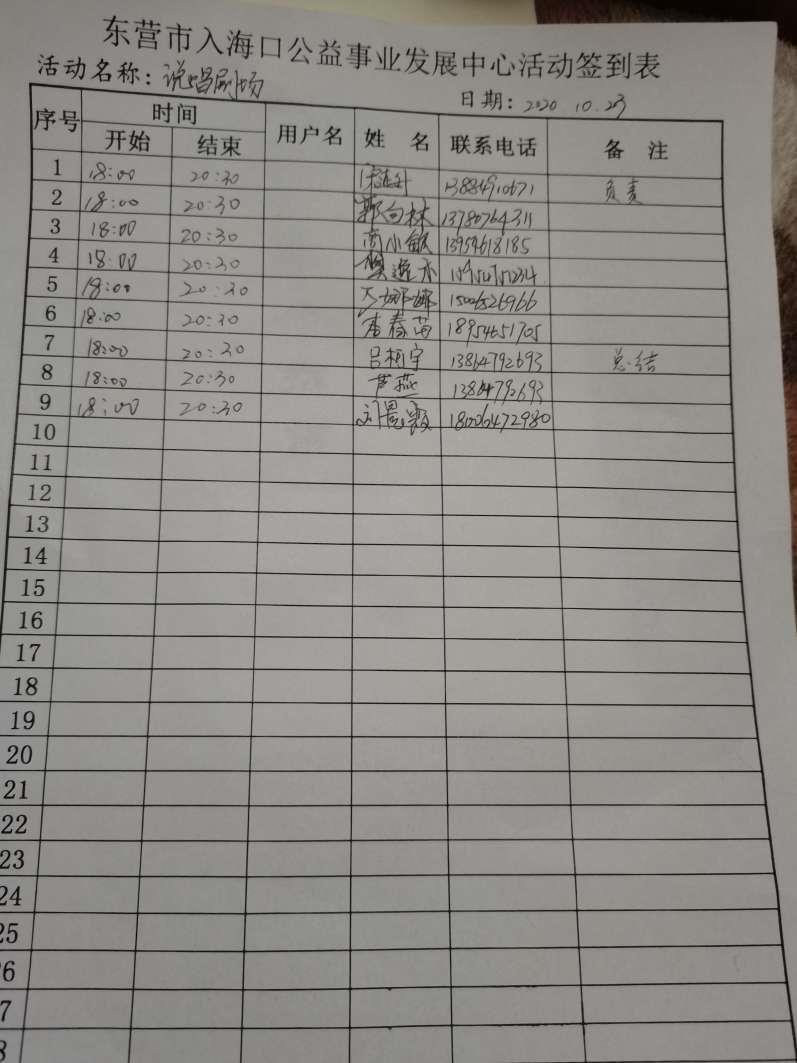 东营市入海口公益事业发展中心活动签到表
活动名称：说唱剧场 日期：2020 10.23
序号 时间 用户名 姓 名 联系电话 备 注
开始 结束
1 18:00 20:30 13884910671 负责
2 18:00 20:30 郭向林 13780764311
3 18:00 20:30 商小敏 13954618185
4 18:00 20:30
5 18:00 20:30 15006526966
6 18:00 20:30 李春苗 18954651705
7 18:00 20:30 吕柯宇 13864792693 总结
8 18:00 20:30 芦燕 13864792693
9 18:00 20:30 18006472980
10
11
12
13
14
15
16
17
18
19
20
21
22
23
24
25
26
7
8